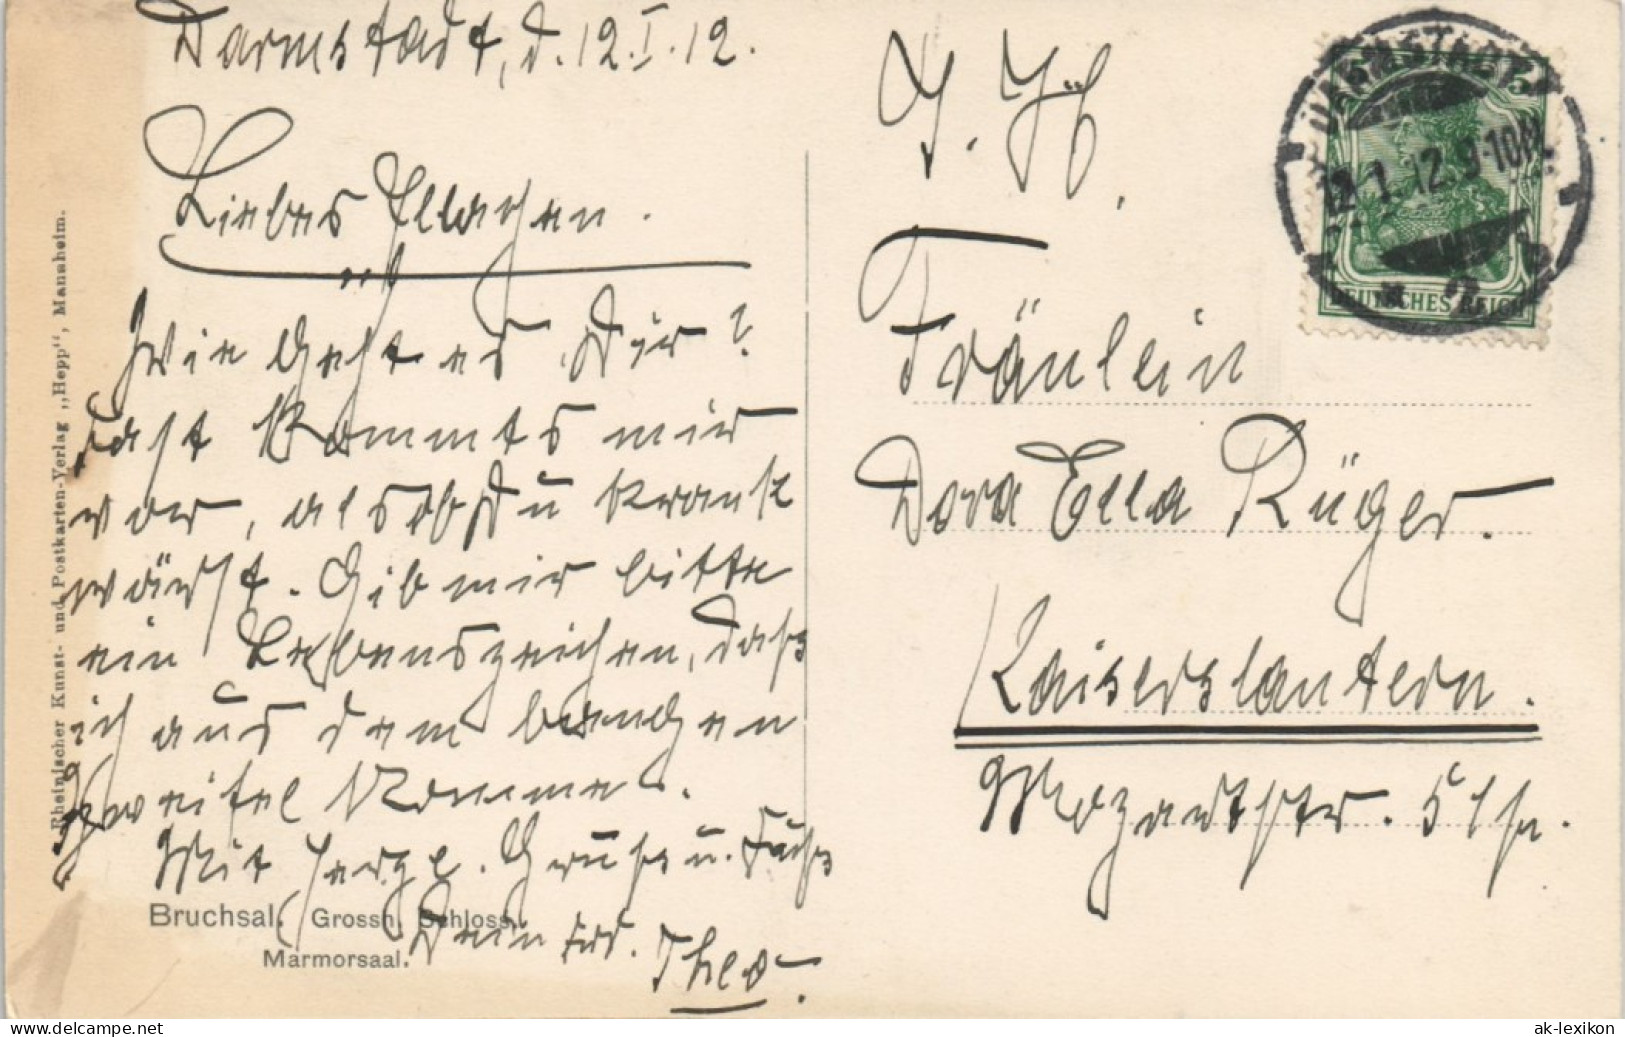 Darmstadt, d. 12.I.12.
Liebes Ellachen.
Wie geht es Dir?
Fast kommts mir
vor, als ob Du krank
wärst. Gib mir bitte
ein Lebenszeichen, dass
ich aus dem bangen
Zweifel komme.
Mit herzl. Gruss u. Kuss
Dein
Theo.
Bruchsal. Grossh. Schloss.
Marmorsaal.
Rheinischer Kunst- und Postkarten-Verlag „Hepp“, Mannheim.
Fräulein
Dora Ella Rüger.
Kaiserslautern.
Mozartstr. 51
DARMSTADT
12.1.12.9-10N.
2
DEUTSCHES REICH
5
ak-ansichtskarten.de
ak-lexikon